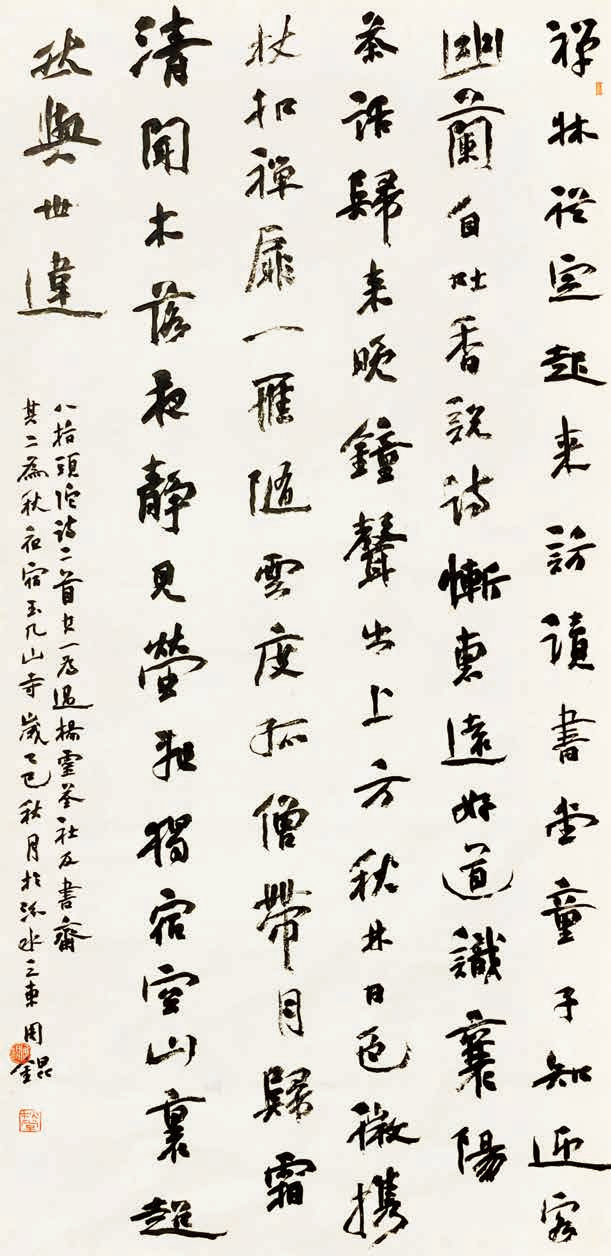 禅牀從定起來訪讀書堂童子知迎客
幽蘭自吐香說詩慚惠遠好道識襄陽
茶話歸來晚鐘聲出上方秋林日色微攜
杖扣禪扉一雁隨雲度孤僧帶月歸霜
清聞木落夜靜見螢飛獨宿空山裏超
然與世違
八指頭陀詩二首其一為過楊靈荃社友書齋
其二為秋夜宿玉几山寺歲乙巳秋月於水之東周錕